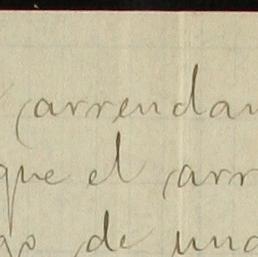 arrendam
que el arr
go de una